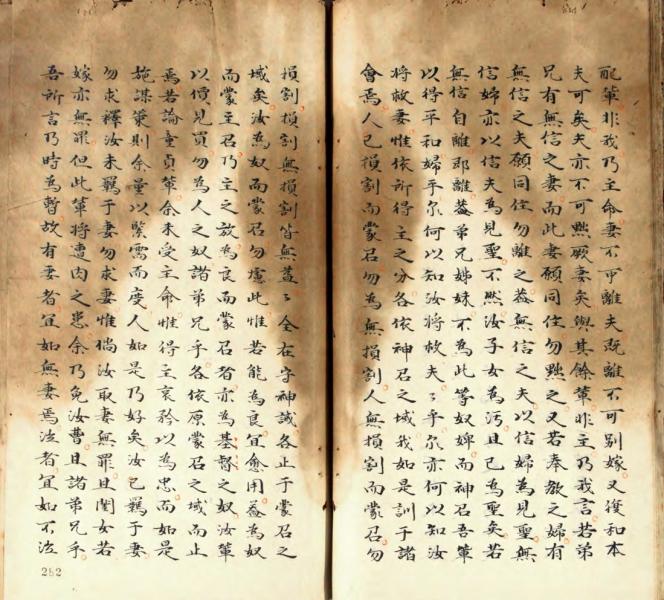 配輩非我乃主命妻不可離夫既離不可别嫁又復和本
夫可矣夫亦不可㸃厥妻矣與其餘輩非主乃我言若弟
兄有無信之妻而此妻願同住勿㸃之又若奉教之婦有
無信之夫願同住勿離之葢無信之夫以信婦為見聖無
信婦亦以信夫為見聖不㸃汝子女為污且已為聖矣若
無信自離郡離葢弟兄姊妹不為此等奴婢而神召吾輩
以得平和婦乎尔何以知汝將救夫夫乎尔亦何以知汝
將救妻惟依所得主之分各依神召之域我如是訓于諸
會焉人已損割而蒙召勿為無損割人無損割而蒙召勿
損割損割無損割皆無葢葢全在守神誡各止于蒙召之
域矣汝為奴而蒙召勿慮此惟若能為良宜愈用葢為奴
而蒙主召乃主之放為良而蒙召者亦為基督之奴汝輩
以價見買勿為人之奴諸弟兄乎各依原蒙召之域而止
焉若論童貞輩余未受主命惟得主哀矜以為忠而如是
施謀策則余量以緊需而度人如是乃好矣汝已羈于妻
勿求釋汝未羈于妻勿求妻惟倘汝取妻無罪且閨女若
嫁亦無罪但此輩將遭肉之患余乃免汝曹且諸弟兄乎
吾所言乃時為暫故有妻者宜如無妻焉泣者宜如不泣
282